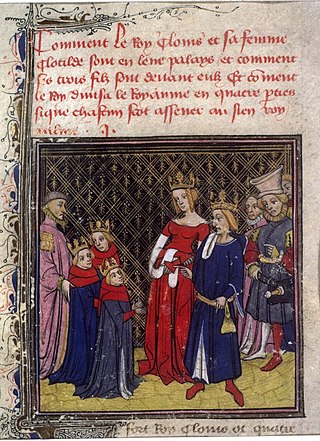 Comment le Roy Clovis et sa femme
Clotilde sont en leur palays et comment
ses trois filz sont devant eulz Et coment
le Roy divisa le Royaume en quatre pties
si que chascun scot assener au sien Roy
fort Roy Clovis et quatre